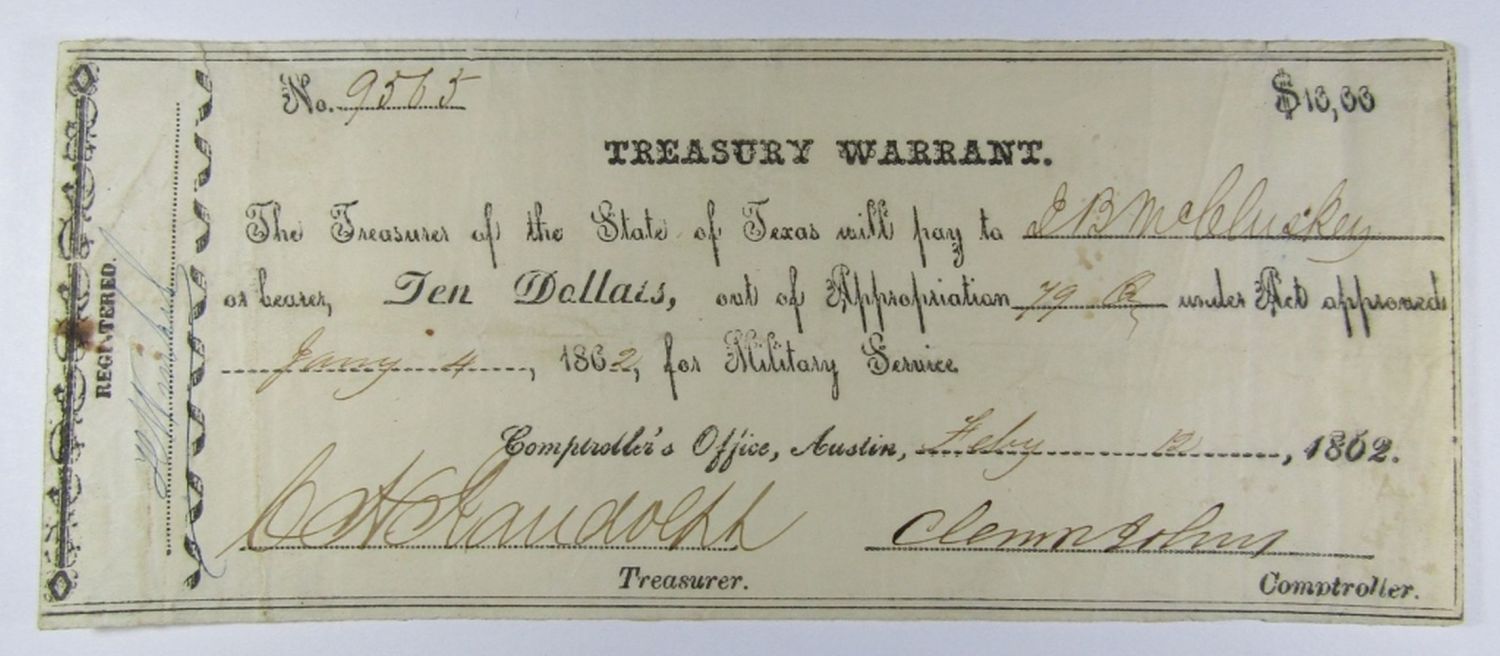 No. 9565
$10,00
TREASURY WARRANT.
The Treasurer of the State of Texas will pay to J B McCluskey
or bearer, Ten Dollars, out of Appropriation 79 under Act approved
Jany 4, 1862, for Military Service
Comptroller's Office, Austin, Feby 12, 1862.
C H Randolph
Clem R Johns
Treasurer.
Comptroller.
REGISTERED.